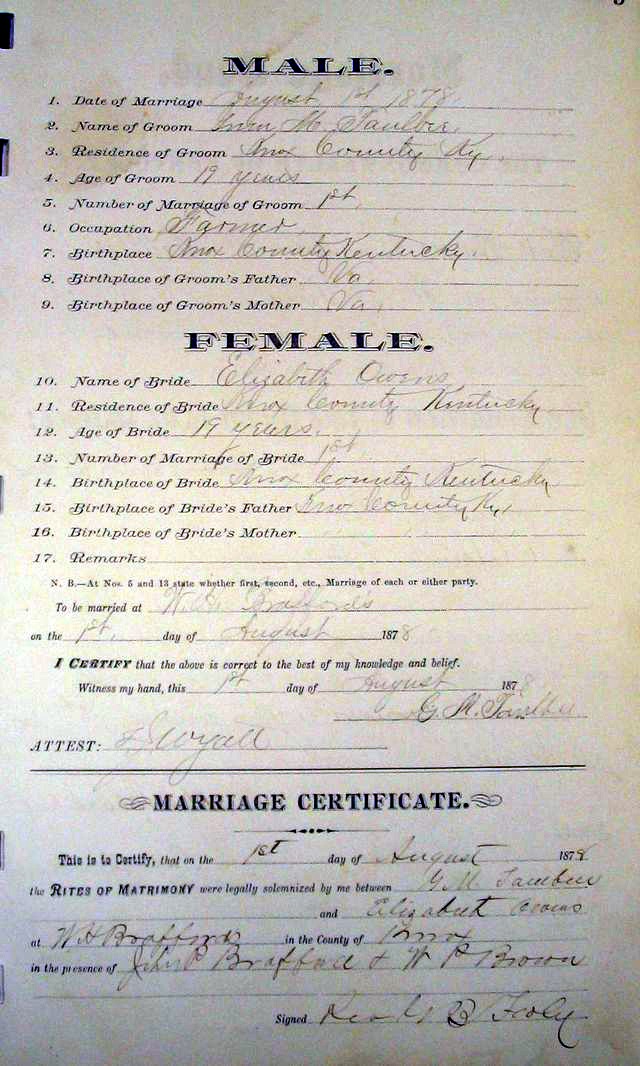 MALE.
1. Date of Marriage August 1st 1878.
2. Name of Groom M. Faulkner
3. Residence of Groom Knox County Ky.
4. Age of Groom 19 years
5. Number of Marriage of Groom 1st
6. Occupation Farmer
7. Birthplace Knox County Kentucky.
8. Birthplace of Groom's Father Va
9. Birthplace of Groom's Mother Va.
FEMALE.
10. Name of Bride Elizabeth Owens
11. Residence of Bride Knox County Kentucky
12. Age of Bride 19 years.
13. Number of Marriage of Bride 1st
14. Birthplace of Bride Knox County Kentucky
15. Birthplace of Bride's Father Knox County Ky.
16. Birthplace of Bride's Mother
17. Remarks
N. B.—At Nos. 5 and 13 state whether first, second, etc., Marriage of each or either party.
To be married at W. H. Brafford's
on the 1st. day of August 1878
I CERTIFY that the above is correct to the best of my knowledge and belief.
Witness my hand, this 1st day of August 1878
G. M.
ATTEST:
MARRIAGE CERTIFICATE.
This is to Certify, that on the 1st day of August 1878
the RITES OF MATRIMONY were legally solemnized by me between G. M.
and Elizabeth Owens
at W H Braffords in the County of Knox
in the presence of John Brafford & W P Brown
Signed